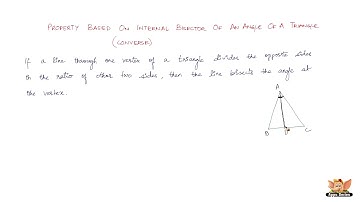 PROPERTY BASED ON INTERNAL BISECTOR OF AN ANGLE OF A TRIANGLE
(CONVERSE)
If a line through one vertex of a triangle divides the opposite sides
in the ratio of other two sides, then the line bisects the angle at
the vertex.
A
B
C